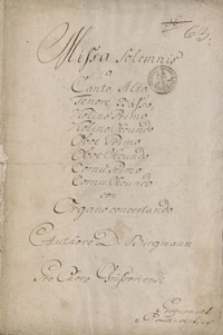 63.
Missa Solemnis
a
Canto, Alto
Tenore, Basso,
Violino Primo
Violino Secundo
Oboe Primo
Oboe Secundo
Cornu Primo
Cornu Secundo
con
Organo concertando
Authore D. Bergmann
Pro Choro